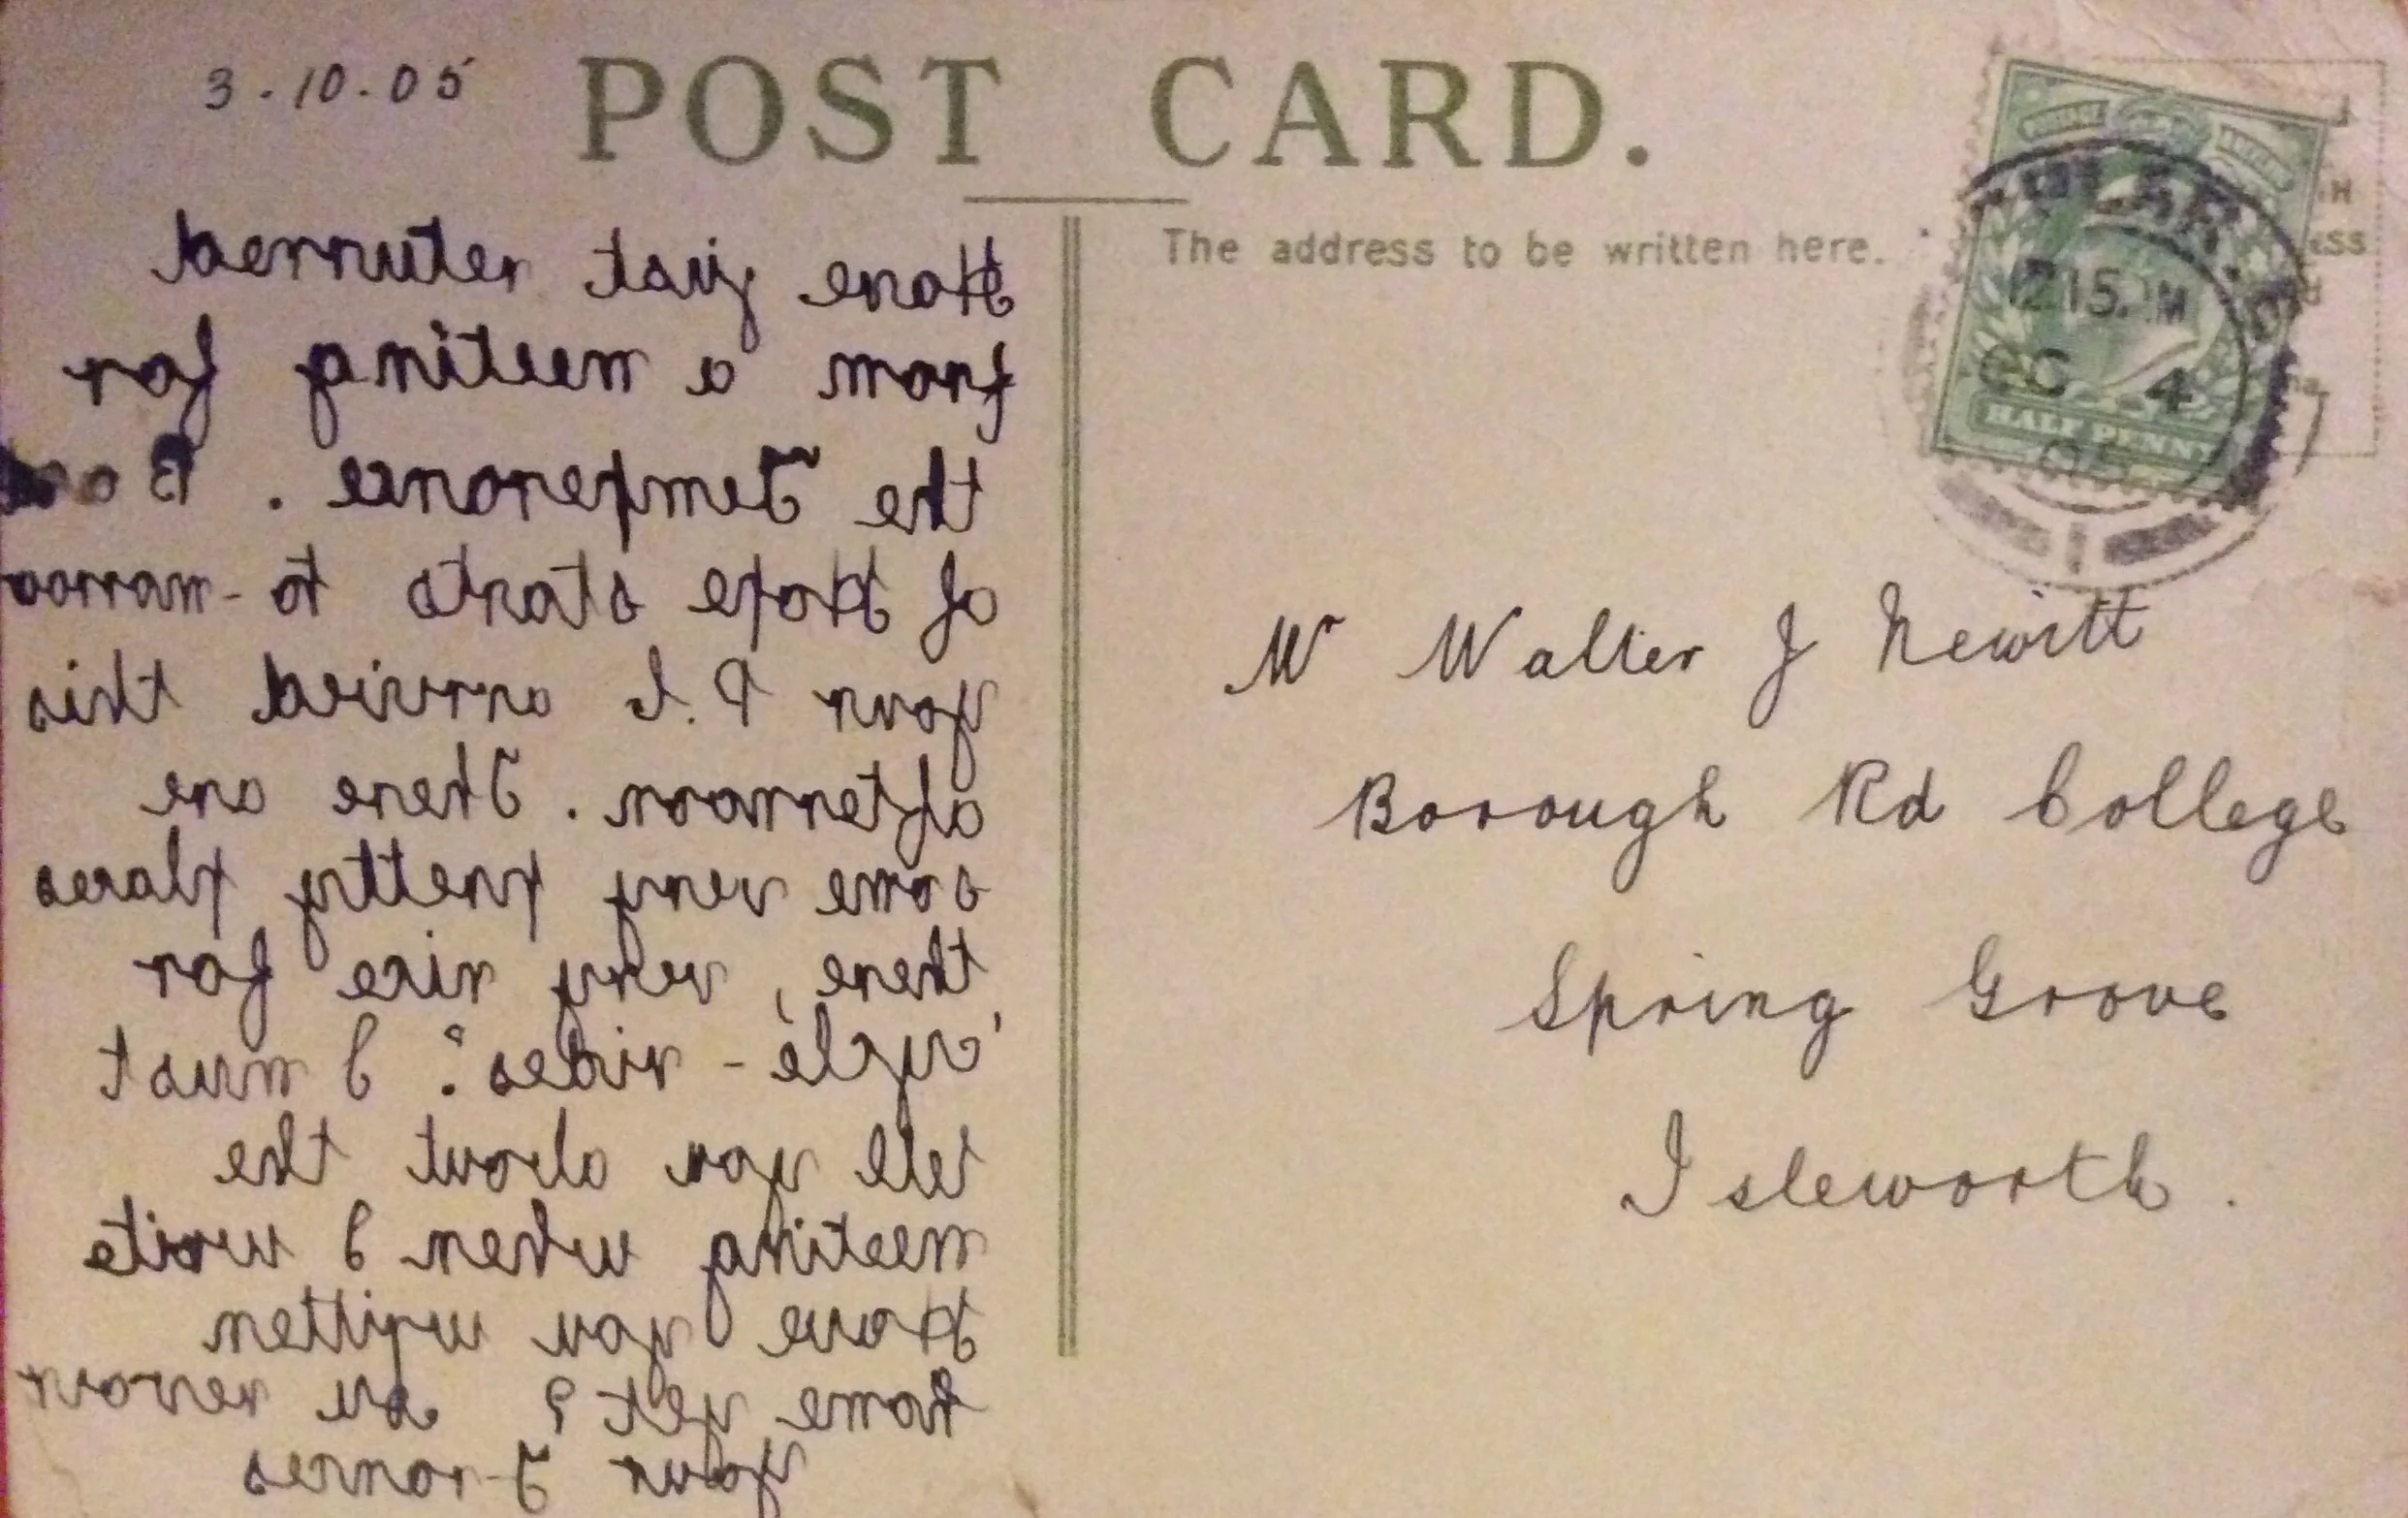 3.10.05
POST CARD.
The address to be written here.
12 15 PM
OC 4
05
HALF PENNY
Have just returned
from a meeting for
the Temperance. Band
of Hope starts to-morrow
your P.C arrived this
afternoon. There are
some very pretty places
there, very nice for
'cycle-rides: I must
tell you about the
meeting when I write
Have you written
home yet?
Your Frances
Mr Walter J Newitt
Borough Rd College
Spring Grove
Isleworth.